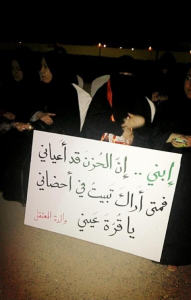 إبني .. إنّ الحُزنَ قد أعياني
فمتى أراكَ تبيتُ في أحضاني
يا قُرّةَ عيني
والدة المعتقل